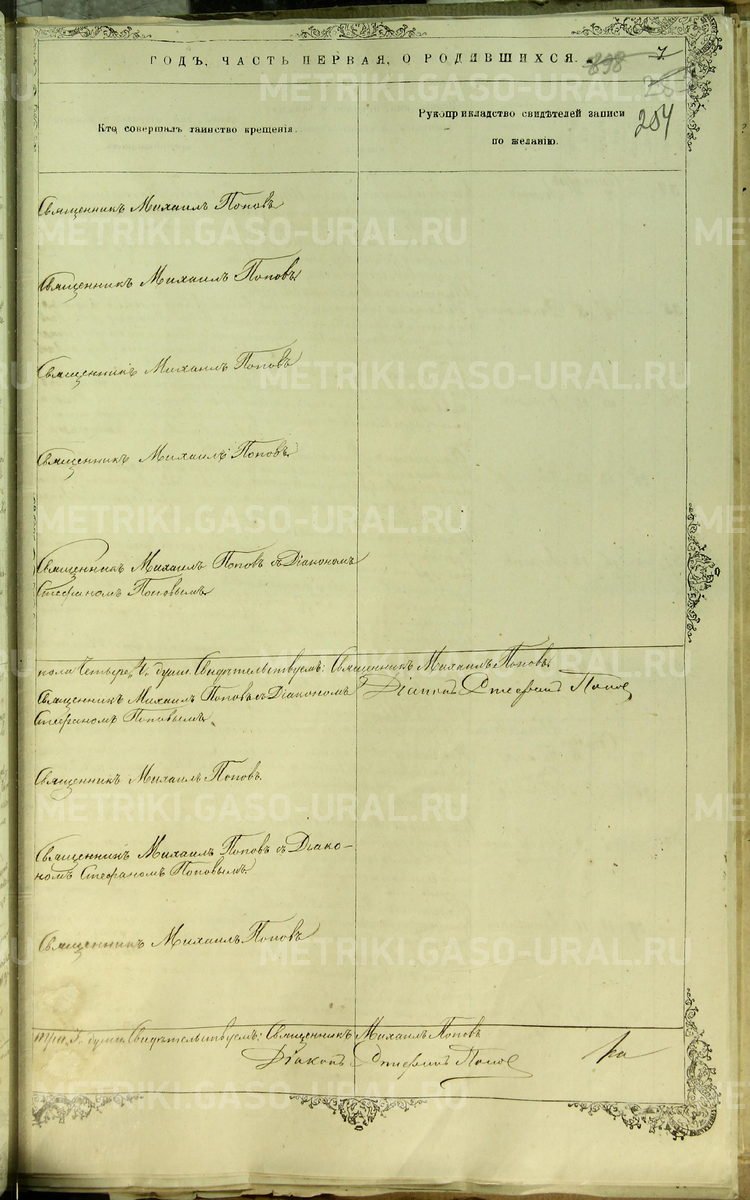 ГОДЪ, ЧАСТЬ ПЕРВАЯ, О РОДИВШИХСЯ.
898
7
254
Кто совершалъ таинство крещенія.
Рукоприкладство свидѣтелей записи
по желанію.
Священникъ Михаилъ Поповъ
Священникъ Михаилъ Поповъ
Священникъ Михаилъ Поповъ
Священникъ Михаилъ Поповъ
Священникъ Михаилъ Поповъ съ Діакономъ
Стефаномъ Поповымъ
пола четыре, 4. души. Свидѣтельствуемъ: Священникъ Михаилъ Поповъ
Діаконъ Стефанъ Попов
Священникъ Михаилъ Поповъ съ Діакономъ
Стефаномъ Поповымъ
Священникъ Михаилъ Поповъ
Священникъ Михаилъ Поповъ съ Діако-
номъ Стефаномъ Поповымъ
Священникъ Михаилъ Поповъ
три, 3. души. Свидѣтельствуемъ: Священникъ Михаилъ Поповъ
Діаконъ Стефанъ Попов
METRIKI.GASO-URAL.RU